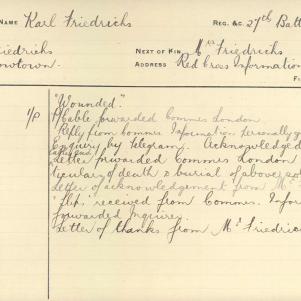 NAME Karl Friedrichs REG. &C. 27th Batt
iedrichs NEXT OF KIN Mrs Friedrichs
owtown. ADDRESS Red Cross Information
"Wounded".
Cable forwarded Commes London
Reply from Commes Information personally
Enquiry by Telegram. Acknowledged
Letter forwarded Commes London
ticulars of death & burial of above
Letter of acknowledgement from
received from Commes. Infor
forwarded Inquirer.
Letter of thanks from Mr Friedric